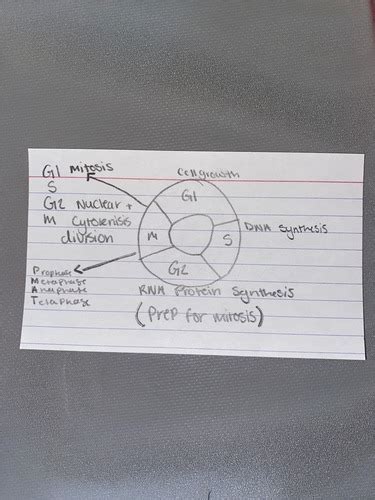 G1 mitosis
S
G2 Nuclear +
M Cytokenisis
division
Cell growth
G1
S
G2
M
DNA synthesis
RNA Protein Synthesis
(Prep for mitosis)
Prophase
Metaphase
Anaphase
Telaphase